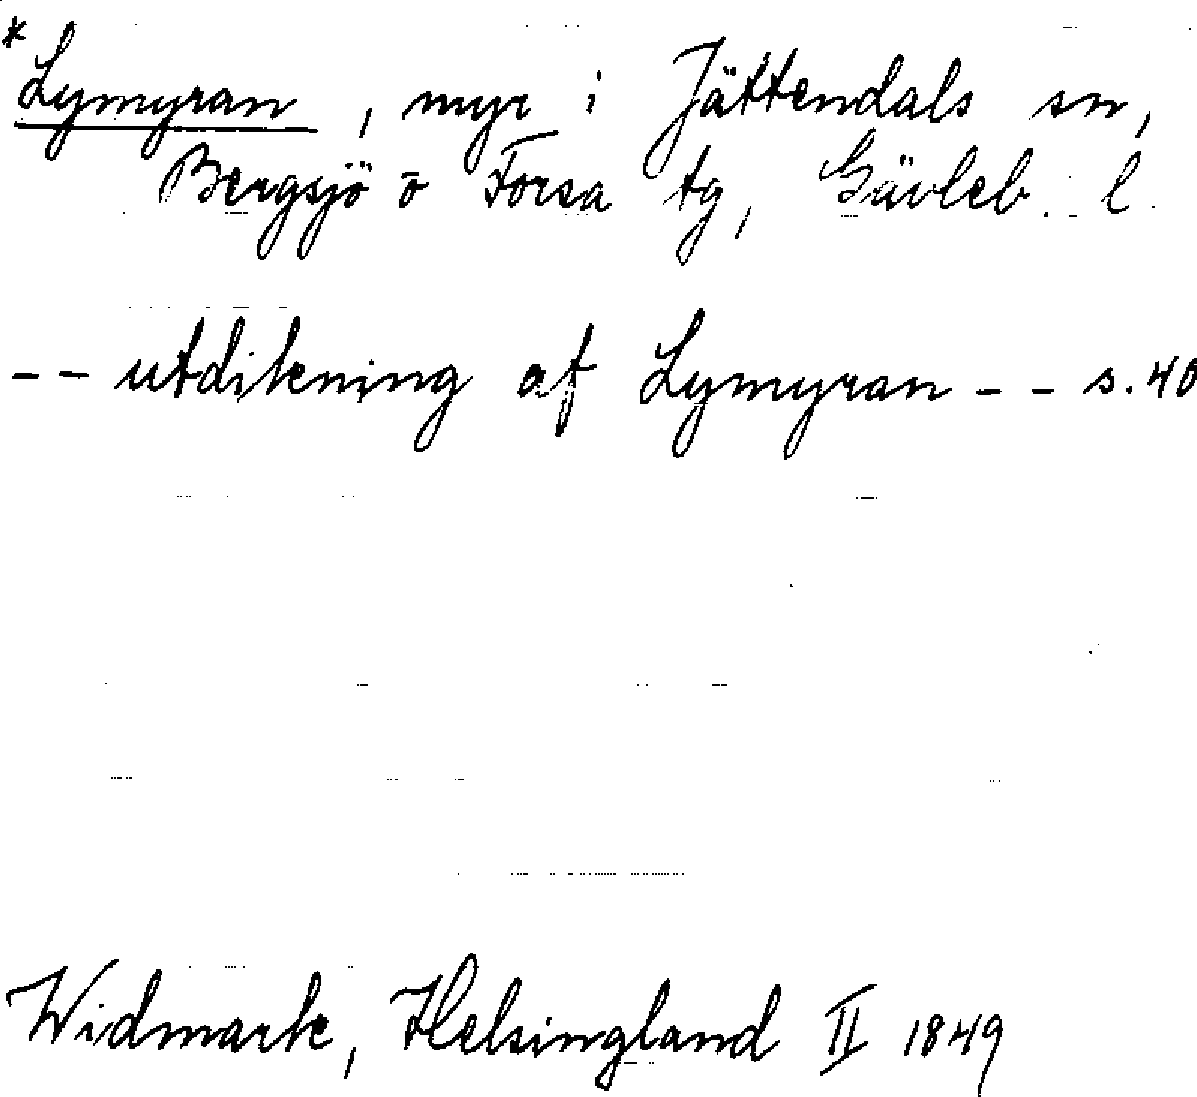 *Lymyran, myr i Jättendals sn,
Bergsjö o Forsa tg, Gävleb. l.
-- utdikning af Lymyran -- s. 40
Widmark, Helsingland II 1849